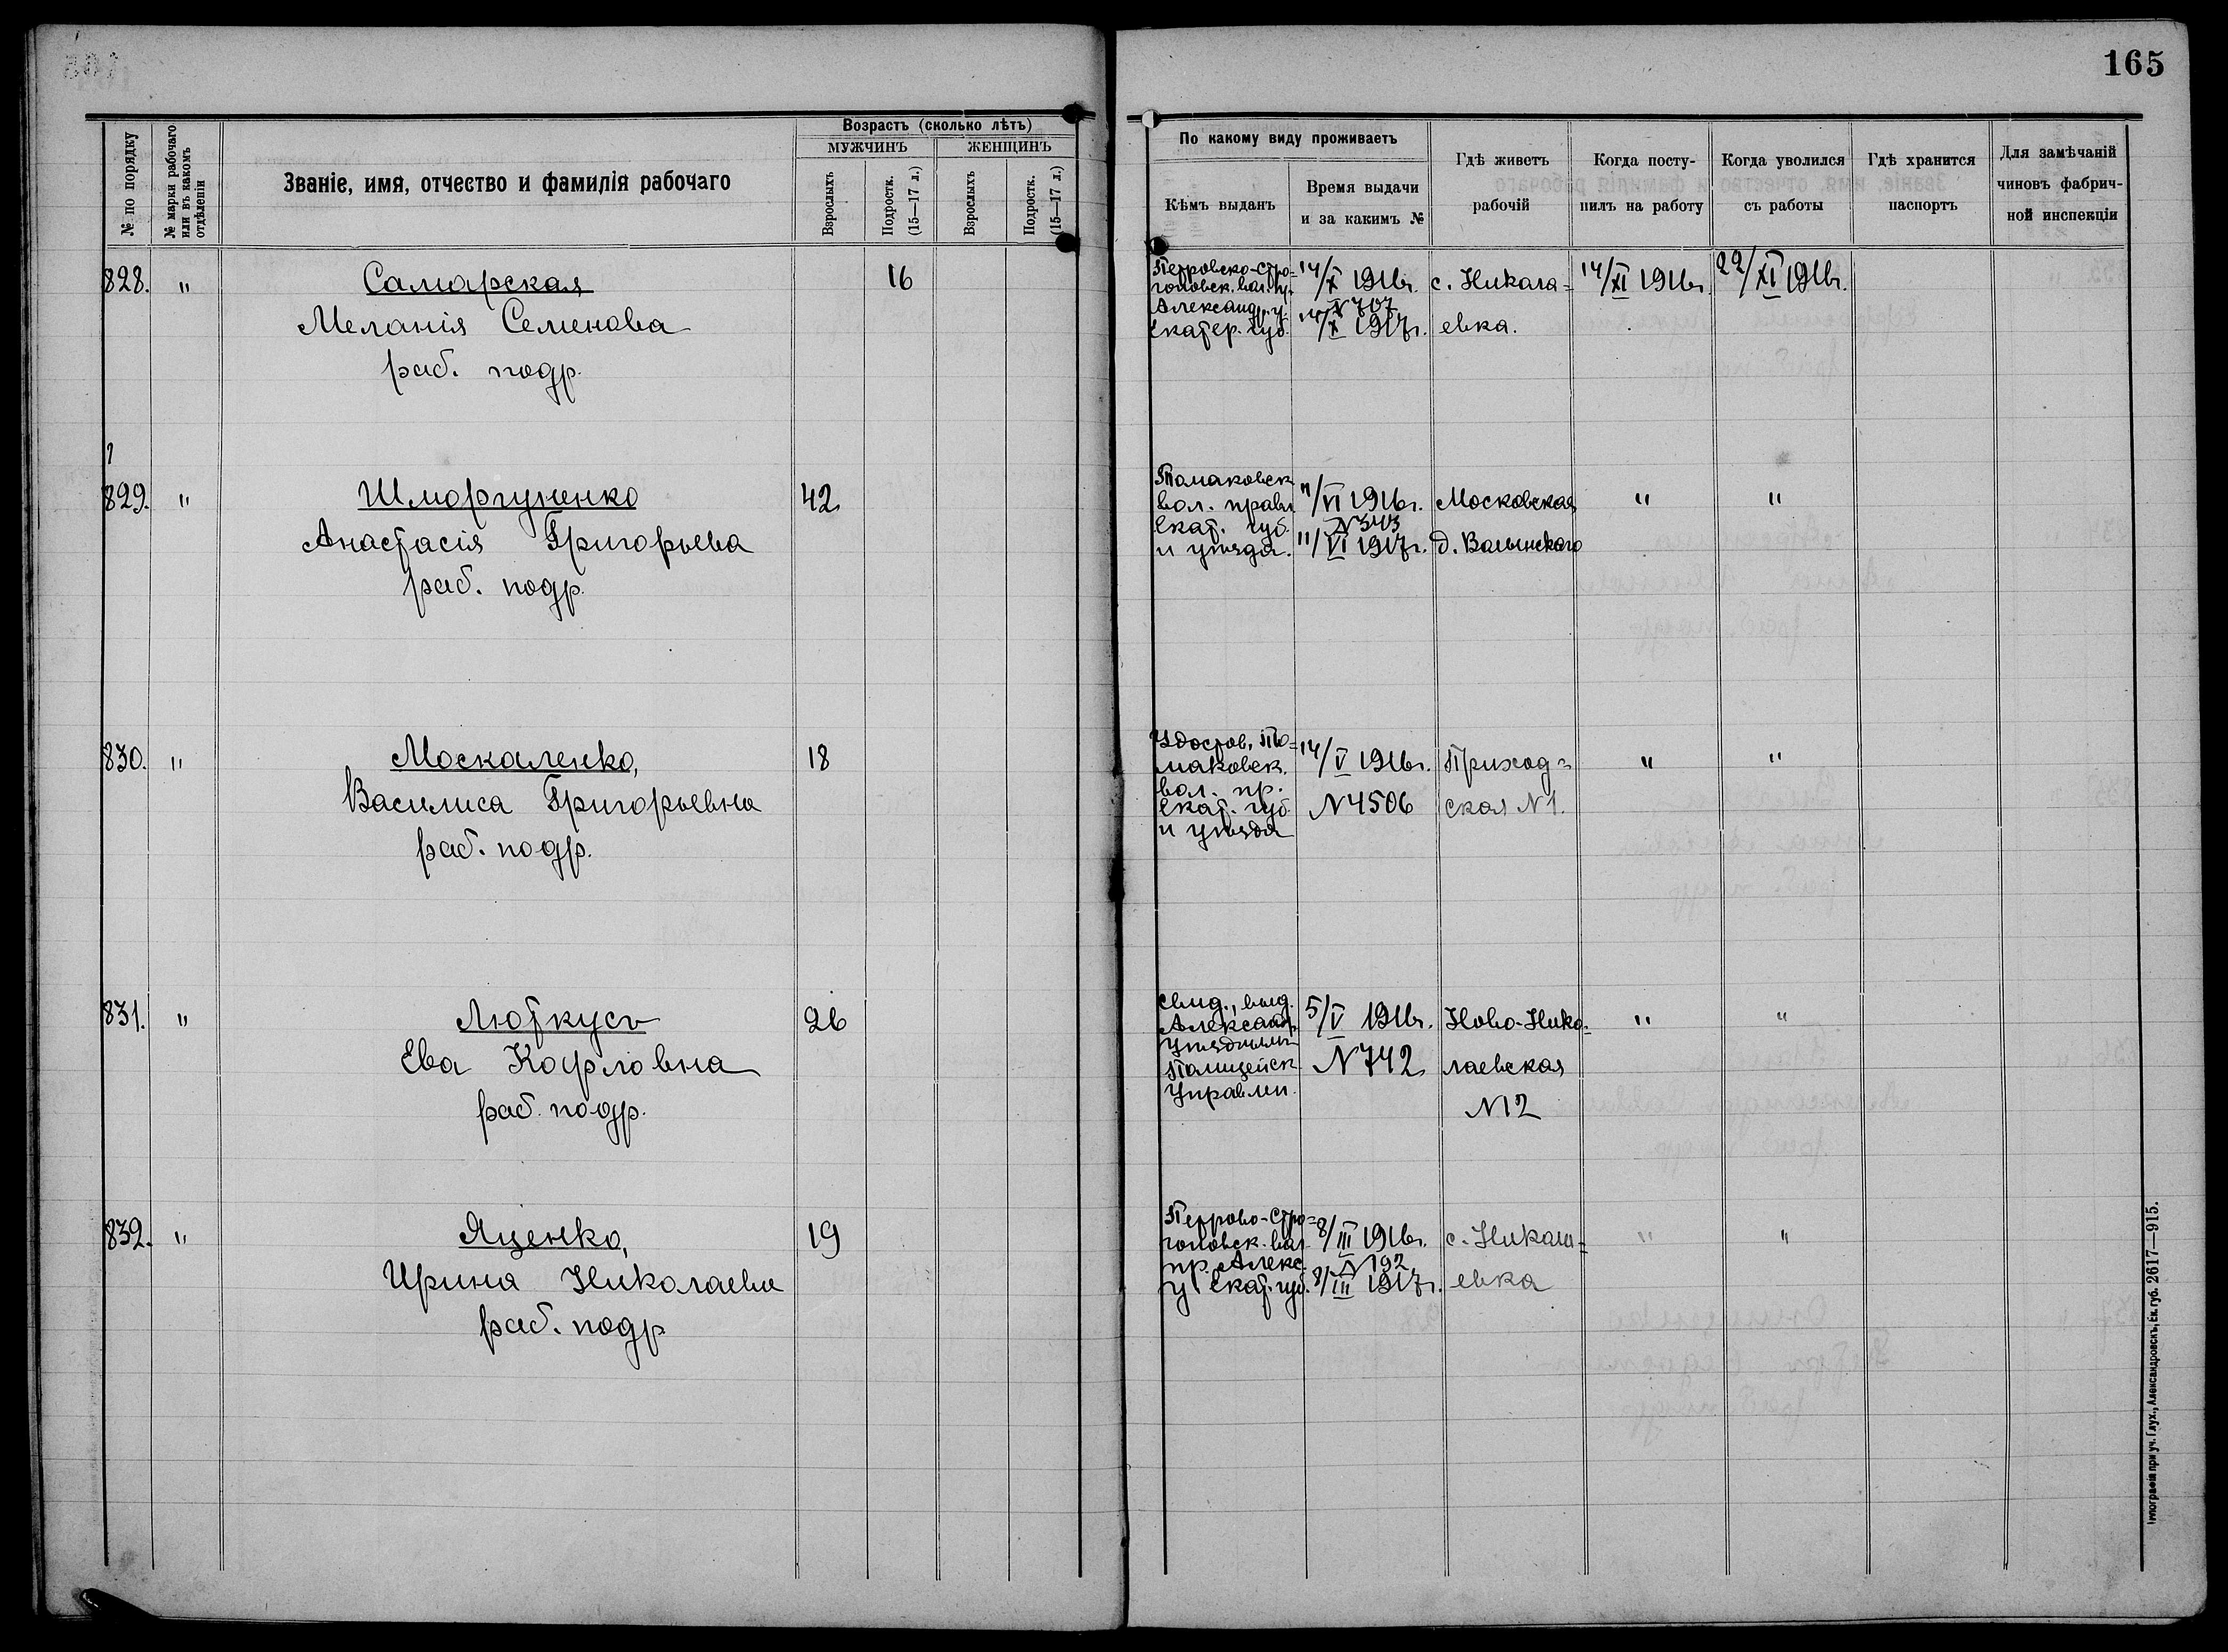 165
№ по порядку
№ марки рабочаго
или въ какомъ
отдѣленіи
Званіе, имя, отчество и фамилія рабочаго
Возрастъ (сколько лѣтъ)
МУЖЧИНЪ
ЖЕНЩИНЪ
Взрослыхъ
Подростк.
(15—17 л.)
Взрослыхъ
Подростк.
(15—17 л.)
По какому виду проживаетъ
Кѣмъ выданъ
Время выдачи
и за какимъ №
Гдѣ живетъ
рабочій
Когда посту-
пилъ на работу
Когда уволился
съ работы
Гдѣ хранится
паспортъ
Для замѣчаній
чиновъ фабрич-
ной инспекціи
828. " Самарская 16
Меланія Семенова
раб. подр.
Петровско-Стро=
гоновск. вол. пр.
Александр. у.
Екатер. губ.
14/X 1916г.
№ 707
14/X 1917г.
с. Никола=
евка.
14/XI 1916г.
22/XI 1916г.
829. " Шморгуненко 42
Анастасія Григорьева
раб. подр.
Томаковск.
вол. правл.
Екат. губ.
и уѣзда.
11/VI 1916г.
№ 343
11/VI 1917г.
Московская
д. Волынскаго
" "
830. " Москаленко, 18
Василиса Григорьевна
раб. подр.
Удостов. То=
маковск.
вол. пр.
Екат. губ.
и уѣзда
14/V 1916г.
№ 4506
Приход=
ская № 1.
" "
831. " Люткусъ 26
Ева Карловна
раб. подр.
Свид., выд.
Александр.
Уѣзднымъ
Полицейск.
Управлен.
5/V 1916г.
№ 742
Ново-Нико=
лаевская
№ 12
" "
832. " Яценко, 19
Ирина Николаева
раб. подр
Петрово-Стро=
гоновск. вол.
пр. Алекс.
у. Екат. губ.
8/III 1916г.
№ 192
8/III 1917г.
с. Никола=
евка
" "
Типографія при уч. Глух., Александровскъ, Ек. губ. 2617—915.